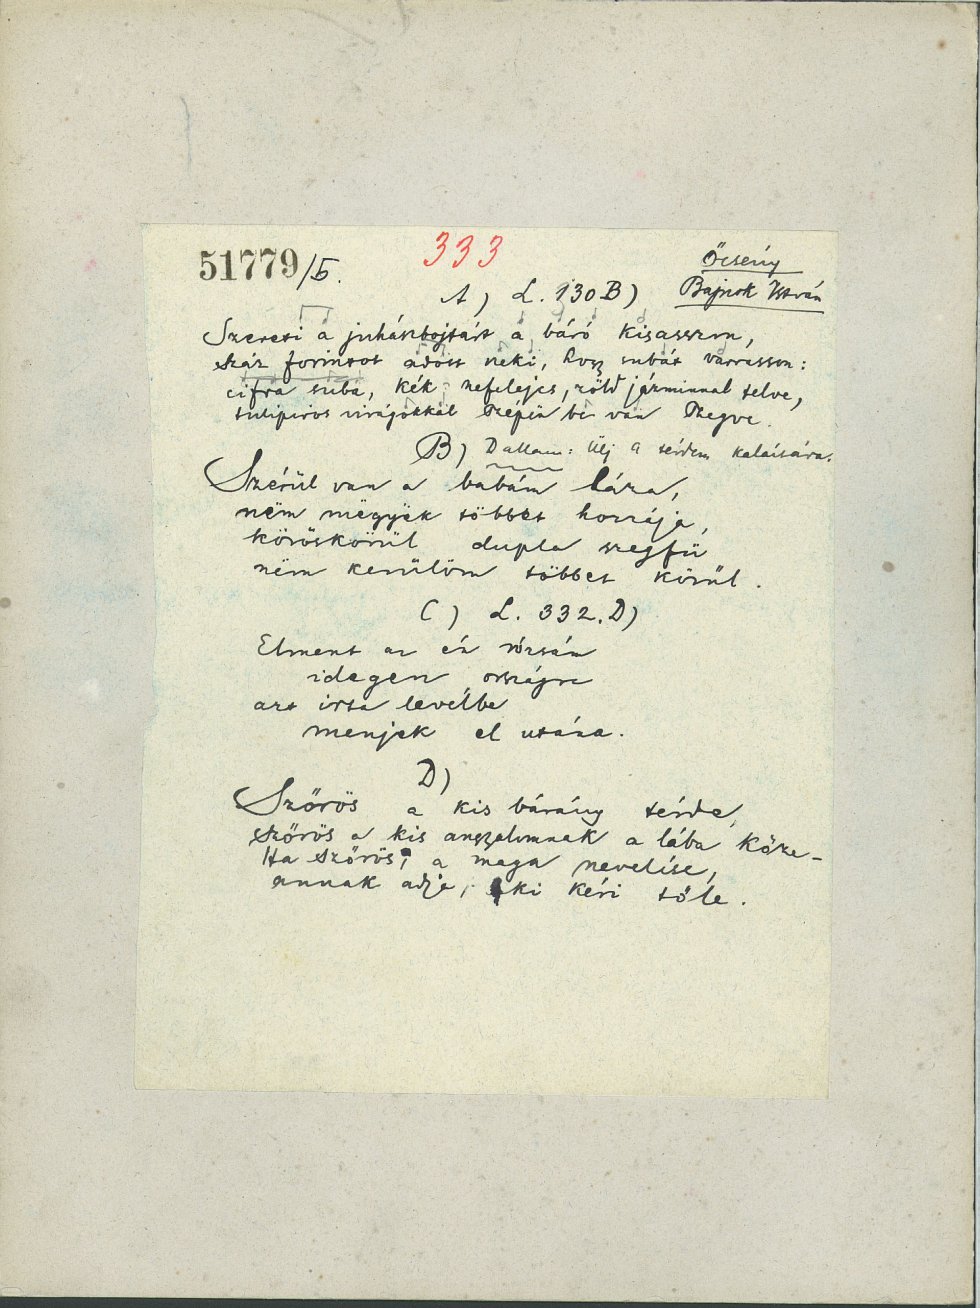 51779/5.
333
Őcsény
Bajnok István
A) L. 130B)
Szereti a juhászbojtárt a báró kisasszon,
száz forintot adott neki, hogy subát varrasson:
cifra suba, kék nefelejcs, zöld jázminnal telve,
tulipiros virágokkal szépen be van szegve.
B) Dallam: Ülj a térdem kalácsára.
Szérül van a babám háza,
nëm mëgyëk többet hozzája,
köröskörül dupla szegfü
nëm kerülöm többet körül.
C) L. 332. D)
Elment az én rózsám
idegen országra
azt irta levélbe
menjek el utána.
D)
Szőrös a kis bárány térde,
szőrös a kis anszalomnak a lába köze–
Ha szőrös, a maga nevelése,
annak adja, ki kéri tőle.